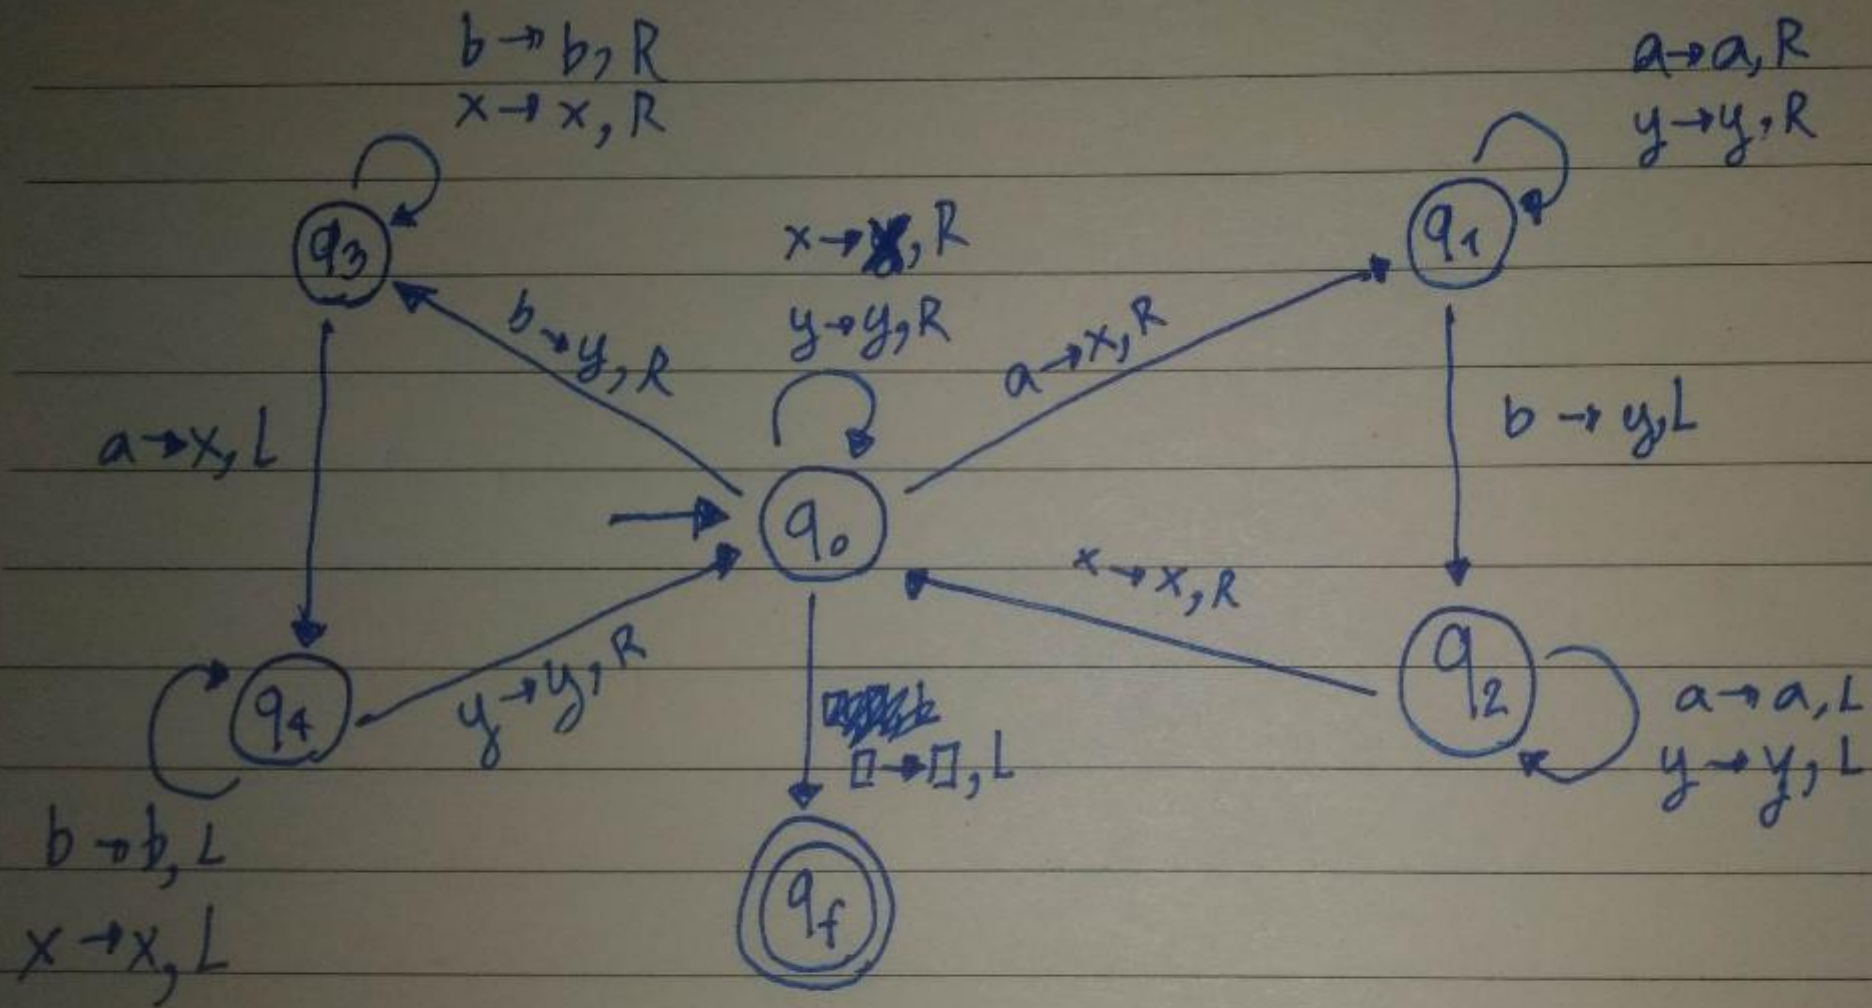 b → b, R
x → x, R
a → a, R
y → y, R
q3
x → , R
y → y, R
q1
b → y, R
a → x, R
a → x, L
b → y, L
q0
x → x, R
q4
y → y, R
q2
□ → □, L
a → a, L
y → y, L
b → b, L
x → x, L
qf